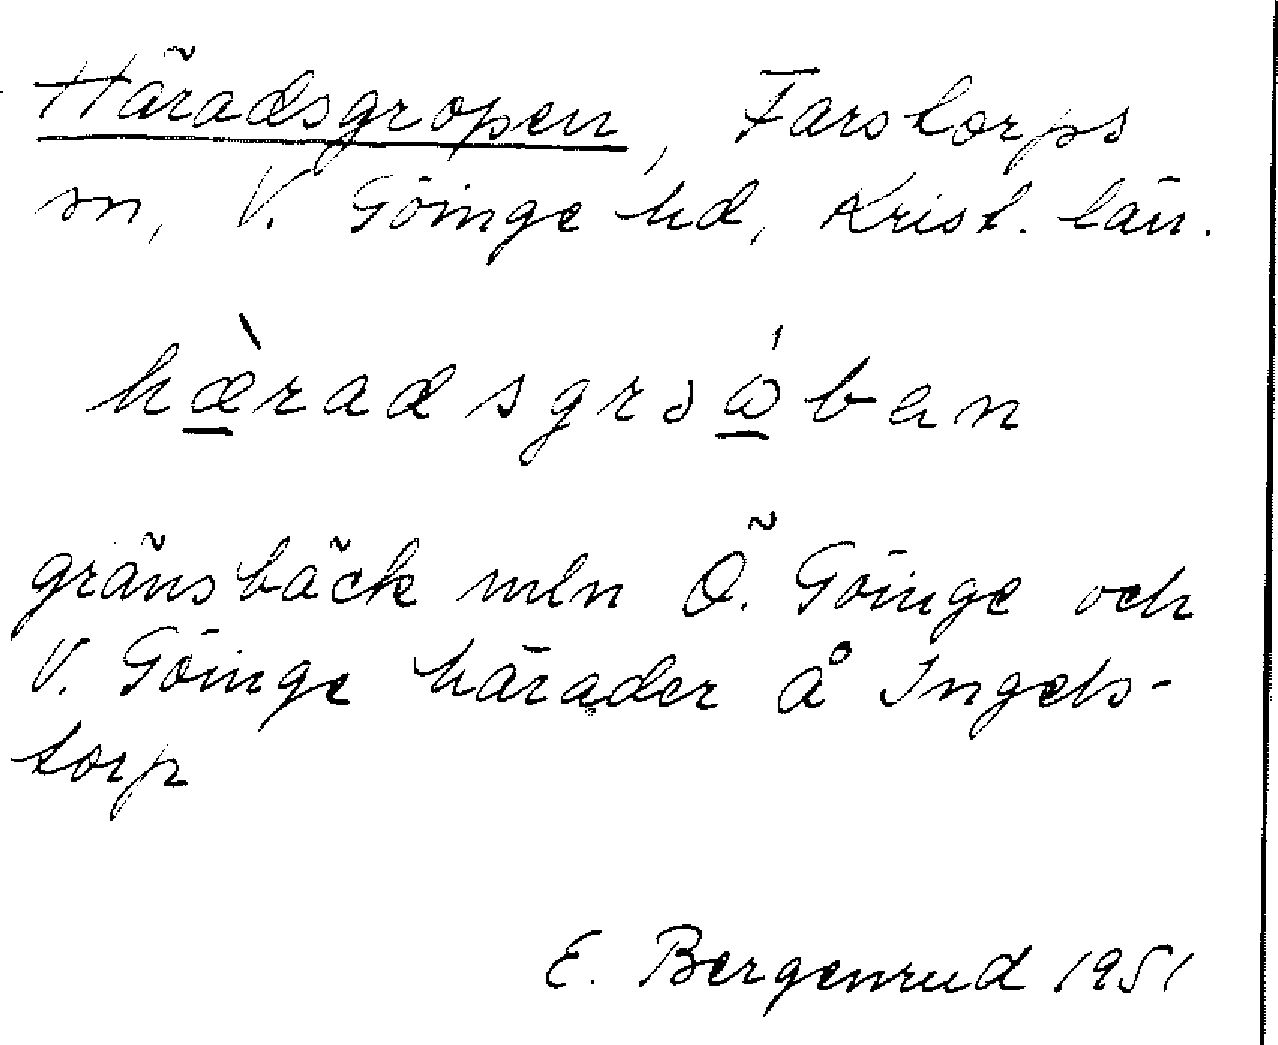 Häradsgropen, Farstorps
sn, V. Göinge hd, Krist. län.
hæ̀radsgrɔώban
gränsbäck mln Ö. Göinge och
V. Göinge härader å Ingels-
torp
E. Bergenrud 1951